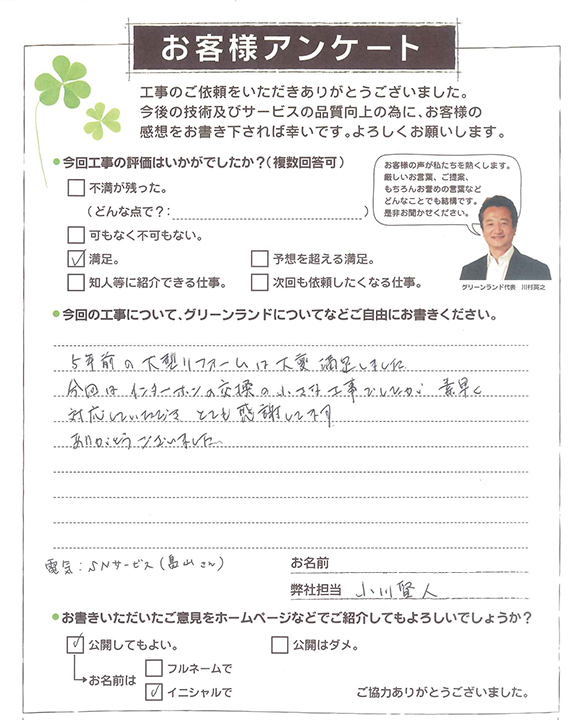 お客様アンケート
工事のご依頼をいただきありがとうございました。
今後の技術及びサービスの品質向上の為に、お客様の
感想をお書き下されば幸いです。よろしくお願いします。
今回工事の評価はいかがでしたか？(複数回答可)
不満が残った。
(どんな点で？: )
可もなく不可もない。
満足。 予想を超える満足。
知人等に紹介できる仕事。 次回も依頼したくなる仕事。
お客様の声が私たちを熱くします。
厳しいお言葉、ご提案、
もちろんお誉めの言葉など
どんなことでも結構です。
是非お聞かせください。
グリーンランド代表 川村英之
今回の工事について、グリーンランドについてなどご自由にお書きください。
5年前の大型リフォームは大変満足しました
今回はインターホンの交換の小さな工事でしたが 素早く
対応していただき とても感謝してます
ありがとうございました。
電気:SNサービス(畠山さん)
お名前
弊社担当 小川賢人
お書きいただいたご意見をホームページなどでご紹介してもよろしいでしょうか？
公開してもよい。 公開はダメ。
お名前は フルネームで
イニシャルで
ご協力ありがとうございました。